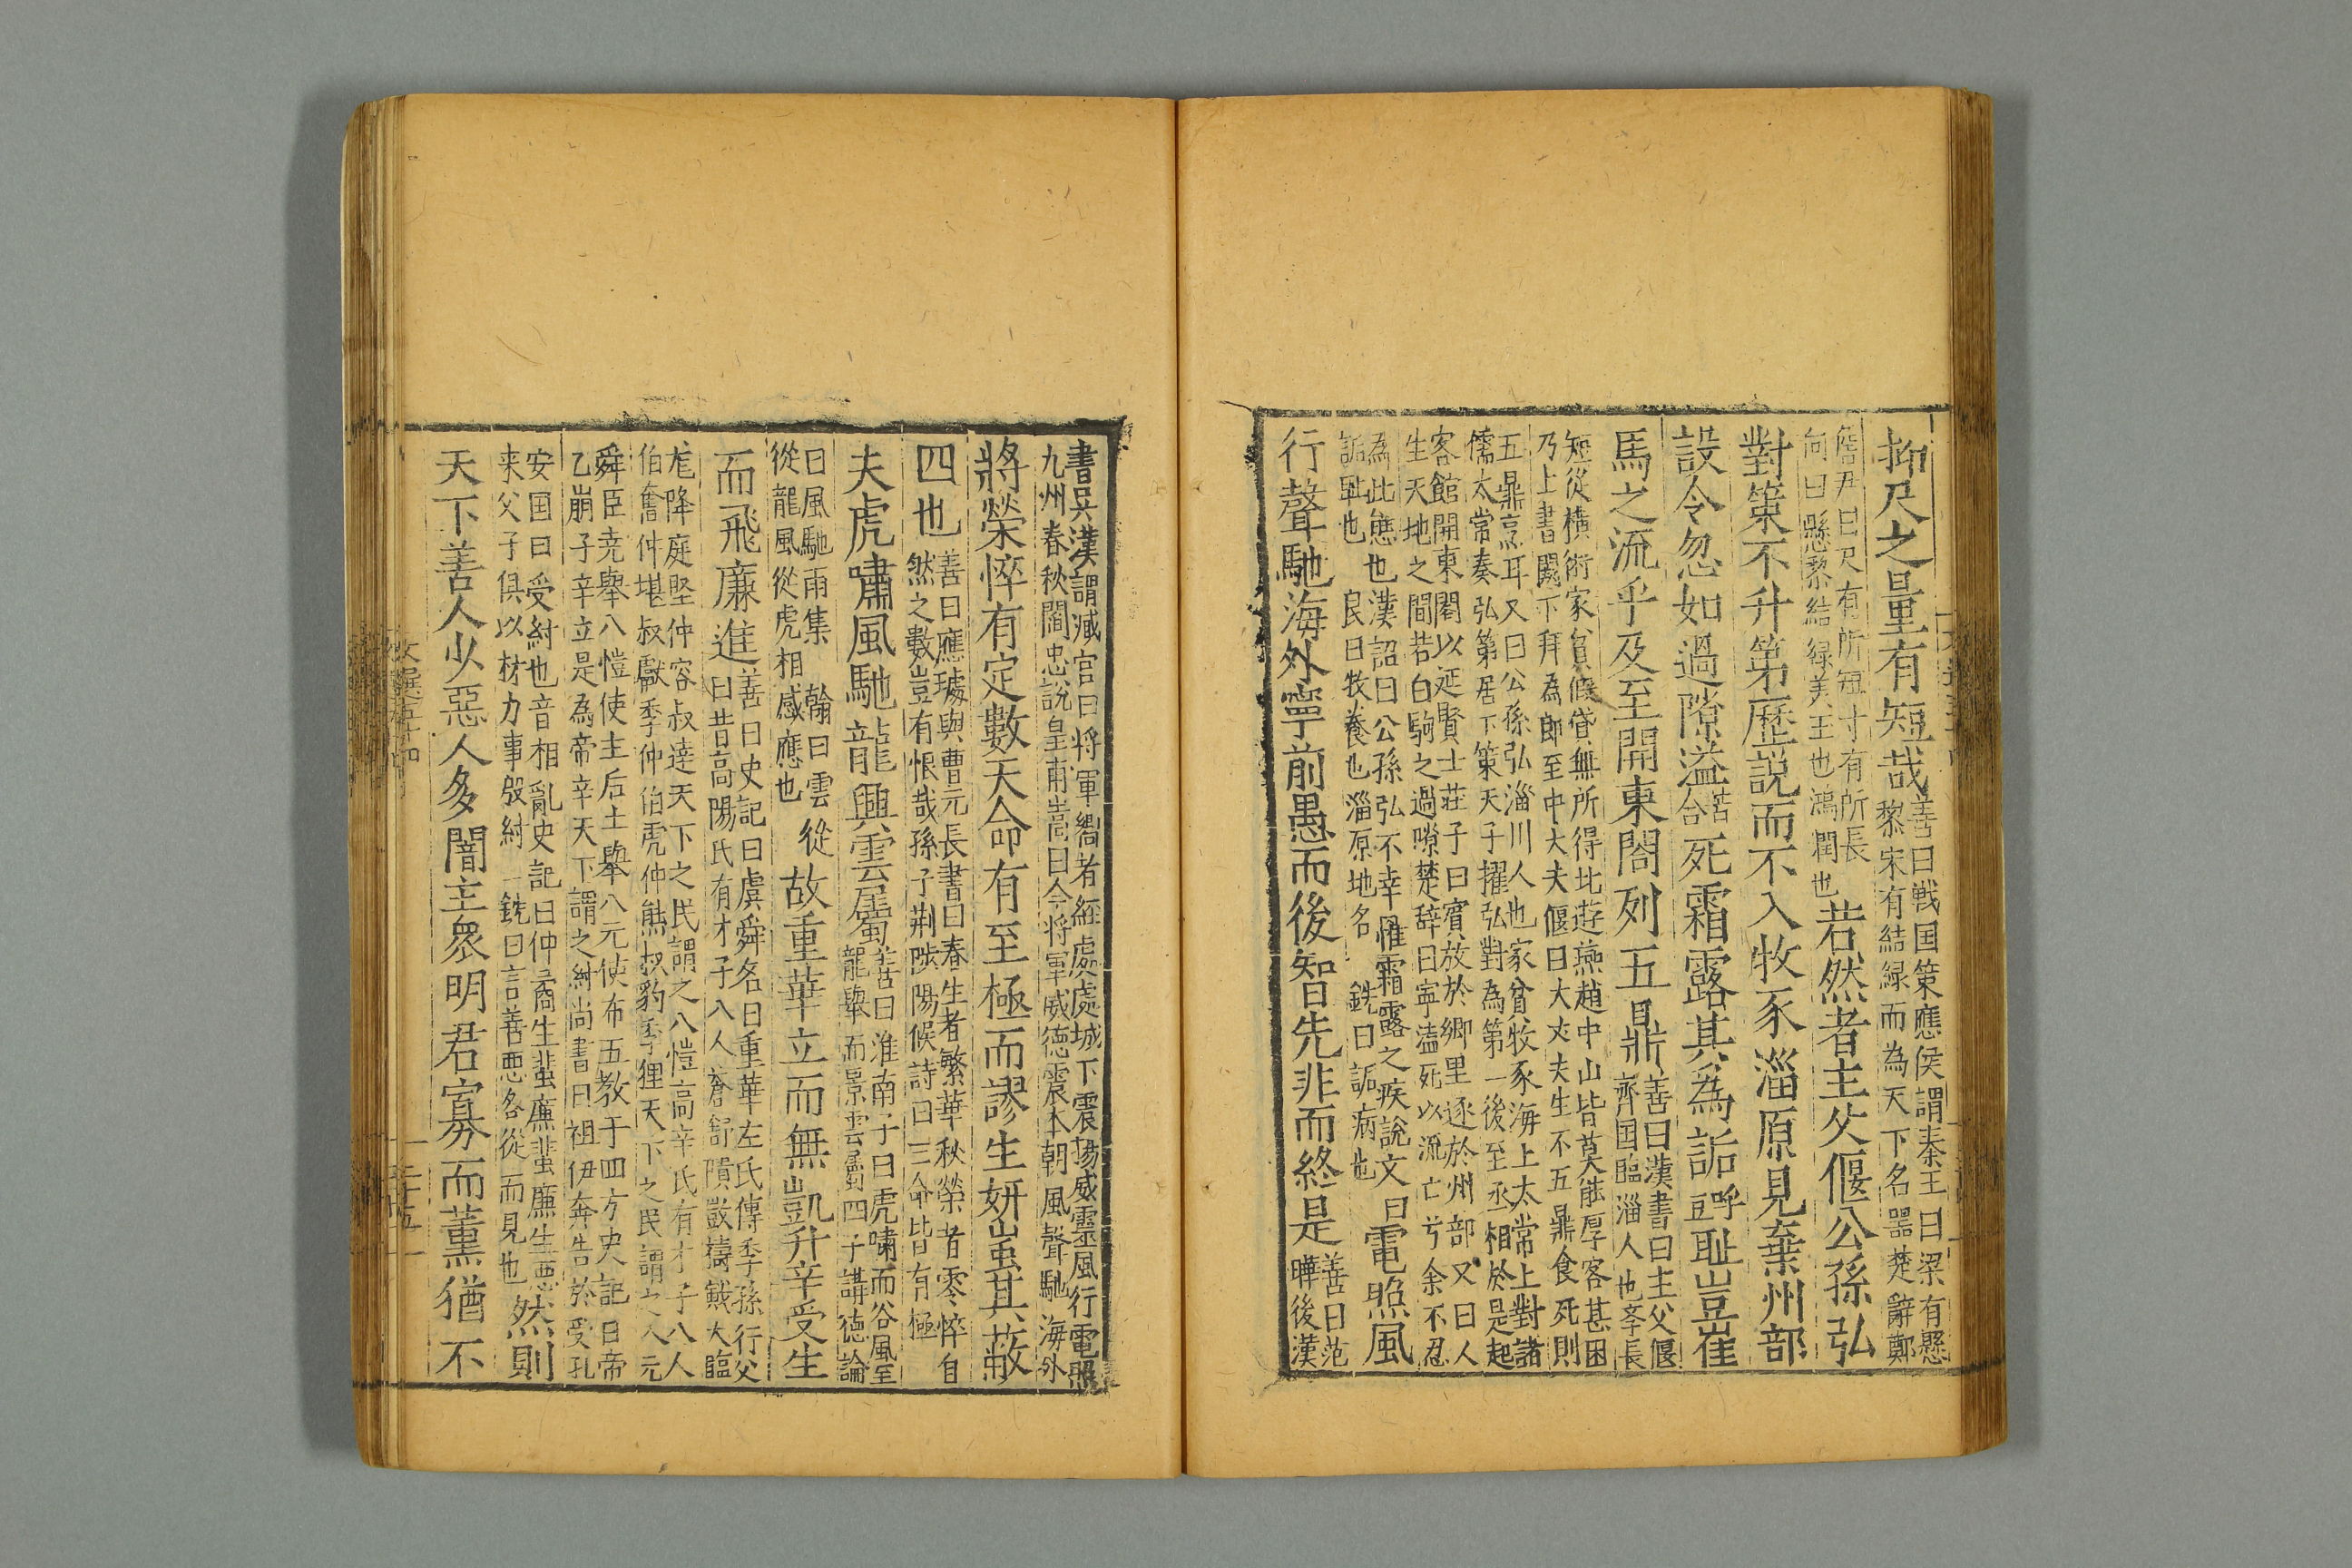 抑尺之量有短哉善曰戰国策應侯謂秦王曰梁有懸
黎宋有結緑而為天下名噐楚辭鄭
詹尹曰尺有所短寸有所長
向曰懸黎結緑美玉也鴻潤也若然者主父偃公孫弘
對策不升第歷説而不入牧豕淄原見棄州部
設令忽如過隙溘苦合死霜露其為詬呼豆耻豈崔
馬之流乎及至開東閤列五鼎善曰漢書曰主父偃
齊国臨淄人也斈長
短從橫術家貧假貸無所得北遊燕趙中山皆莫能厚客甚困
乃上書闕下拜為郎至中大夫偃曰大丈夫生不五鼎食死則
五鼎烹耳又曰公孫弘淄川人也家貧牧豕海上太常上對諸
儒太常奏弘第居下策天子擢弘對為第一後至丞相於是起
客館開東閤以延賢士莊子曰賓放於鄉里逐於州部又曰人
生天地之間若白駒之過隙楚辞曰寧溘死以流亡兮余不忍
為此態也漢詔曰公孫弘不幸罹霜露之疾説文曰
詬恥也 良曰牧養也淄原地名 銑曰詬病也電照風
行聲馳海外寧前愚而後智先非而終是善曰范
曄後漢
書吳漢謂臧宫曰将軍嚮者經處處城下震揚威靈風行電照
九州春秋閻忠説皇甫嵩曰今将軍威德震本朝風聲馳海外
將榮悴有定數天命有至極而謬生妍蚩其蔽
四也善曰應璩與曹元長書曰春生者繁華秋榮者零悴自
然之數豈有恨哉孫子荆陟陽候詩曰三命皆有極
夫虎嘯風馳龍興雲屬善曰淮南子曰虎嘯而谷風至
龍舉而景雲屬四子講德論
曰風馳雨集 翰曰雲從
從龍風從虎相感應也故重華立而無凱升辛受生
而飛廉進善曰史記曰虞舜名曰重華左氏傳季孫行父
曰昔高陽氏有才子八人蒼舒隤敳檮戭大臨
尨降庭堅仲容叔逹天下之民謂之八愷高辛氏有才子八人
伯奮仲堪叔獻季仲伯虎仲熊叔豹季狸天下之民謂之八元
舜臣尭舉八愷使主后土舉八元使布五教于四方史記曰帝
乙崩子辛立是為帝辛天下謂之紂尚書曰祖伊奔告於受孔
安国曰受紂也音相亂史記曰仲裔生蜚廉蜚廉生惡
来父子俱以材力事殷紂 銑曰言善惡各從而見也然則
天下善人少惡人多闇主衆明君寡而薰猶不
文選五十四
二十五